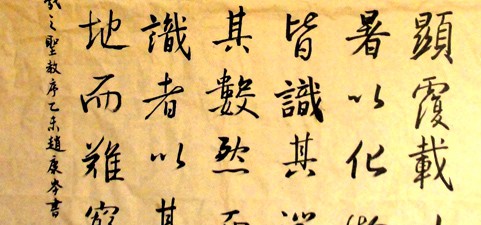 顯覆載
暑以化物
皆識其
其數然而
識者以其
地而難窮
之聖教序乙未趙庚岑書